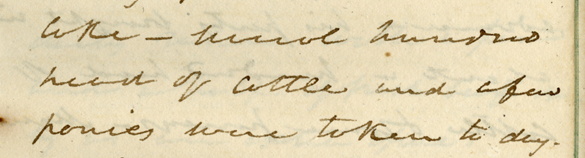 Lake - several hundred
head of Cattle and a few
ponies were taken to day.